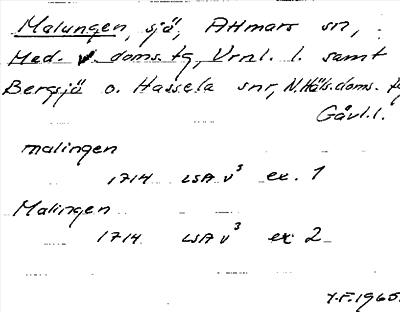 Malungen, sjö, Attmars sn,
Med. v. doms. tg, Vrnl. l. samt
Bergsjö o. Hassela snr, N. Häls. doms. tg
Gävl. l.
malingen
1714 LSA v³ ex. 1
Malingen
1714 LSA v³ ex 2
Y.F. 1965.